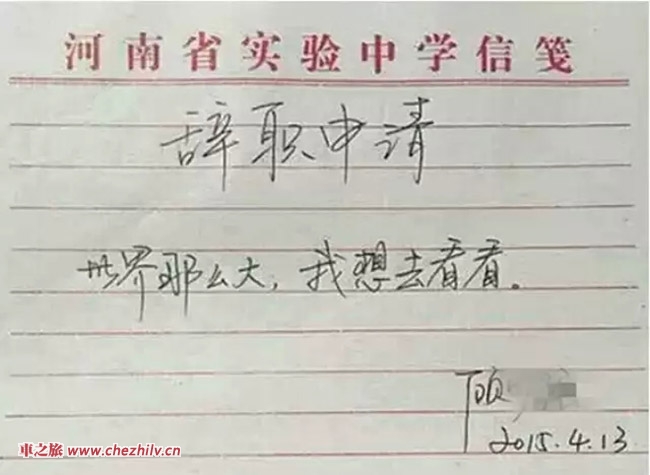 河南省实验中学信笺
辞职申请
世界那么大，我想去看看。
顾
2015.4.13
车之旅 www.chezhilv.cn